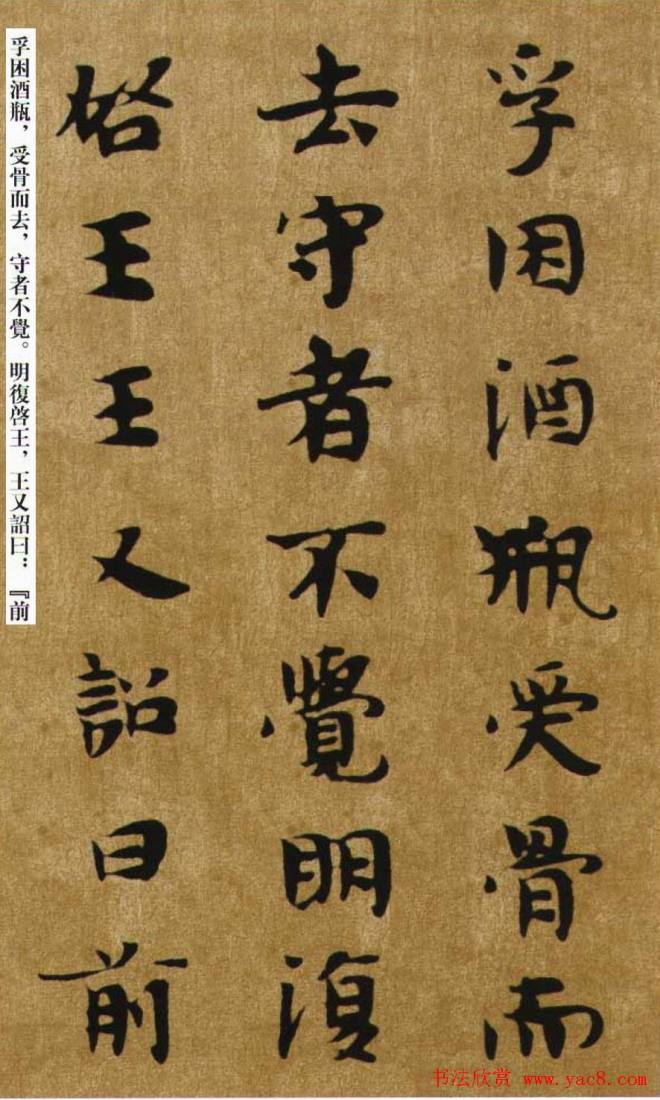 孚因酒瓶受骨而
去守者不覺明復
啓王王又詔曰前
孚困酒瓶，受骨而去，守者不覺。明復啓王，王又詔曰：『前
书法欣赏 www.yac8.com